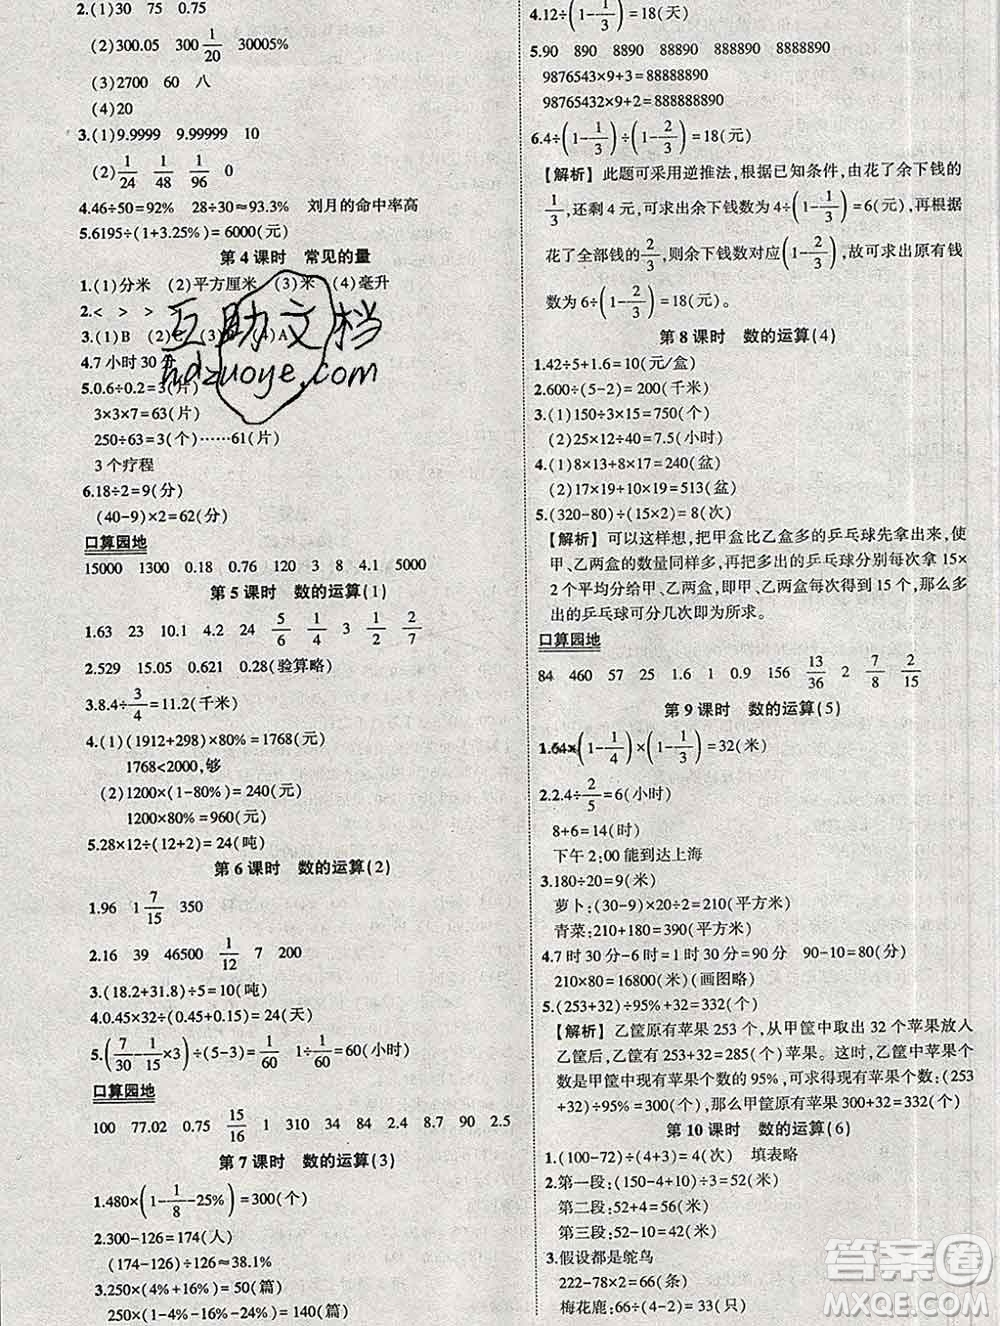 2.(1)30 75 0.75
(2)300.05 300 1/20 30005%
(3)2700 60 八
(4)20
3.(1)9.9999 9.99999 10
(2)1/24 1/48 1/96 0
4.46÷50=92% 28÷30≈93.3% 刘月的命中率高
5.6195÷(1+3.25%)=6000(元)
第4课时 常见的量
1.(1)分米 (2)平方厘米 (3)米 (4)毫升
2.< > > >
3.(1)B (2)C (3) (4)A
4.7小时30分
5.0.6÷0.2=3(片)
3×3×7=63(片)
250÷63=3(个)……61(片)
3个疗程
6.18÷2=9(分)
(40-9)×2=62(分)
口算园地
15000 1300 0.18 0.76 120 3 8 4.1 5000
第5课时 数的运算(1)
1.63 23 10.1 4.2 24 5/6 1/4 3 1/2 2/7
2.529 15.05 0.621 0.28(验算略)
3.8.4÷3/4=11.2(千米)
4.(1)(1912+298)×80%=1768(元)
1768<2000,够
(2)1200×(1-80%)=240(元)
1200×80%=960(元)
5.28×12÷(12+2)=24(吨)
第6课时 数的运算(2)
1.96 1 7/15 350
2.16 39 46500 1/12 7 200
3.(18.2+31.8)÷5=10(吨)
4.0.45×32÷(0.45+0.15)=24(天)
5.(7/30-1/15×3)÷(5-3)=1/60 1÷1/60=60(小时)
口算园地
100 77.02 0.75 15/16 1 310 34 84 2.4 8.7 90 2.5
第7课时 数的运算(3)
1.480×(1-1/8-25%)=300(个)
2.300-126=174(人)
(174-126)÷126≈38.1%
3.250×(4%+16%)=50(篇)
250×(1-4%-16%-24%)=140(篇)
4.12÷(1-1/3)=18(天)
5.90 890 8890 88890 888890 8888890
9876543×9+3=88888890
98765432×9+2=888888890
6.4÷(1-1/3)÷(1-2/3)=18(元)
【解析】此题可采用逆推法,根据已知条件,由花了余下钱的
1/3,还剩4元,可求出余下钱数为4÷(1-1/3)=6(元),再根据
花了全部钱的2/3,余下钱数对应(1-2/3),故可求出原有钱
数为6÷(1-2/3)=18(元)。
第8课时 数的运算(4)
1.42÷5+1.6=10(元/盒)
2.600÷(5-2)=200(千米)
3.(1)150÷3×15=750(个)
(2)25×12÷40=7.5(小时)
4.(1)8×13+8×17=240(盆)
(2)17×10+17×10=513(盆)
5.(320-80)÷(15×2)=8(次)
【解析】可以这样想,把甲盒比乙盒多的乒乓球先拿出来,使
甲、乙两盒的数量同样多,再把多出的乒乓球分别每次拿15×
2个平均分给甲、乙两盒,即甲、乙两盒每次得到15个,那么多
出的乒乓球可分几次即为所求。
口算园地
84 460 57 25 1.6 1 0.9 156 13/36 2 7/8 2/15
第9课时 数的运算(5)
1.64×(1-1/4)×(1-1/3)=32(米)
2.2.4÷2/5=6(小时)
8+6=14(时)
下午2:00能到达上海
3.180÷20=9(米)
萝卜:(30-9)×20÷2=210(平方米)
青菜:210+180=390(平方米)
4.7时30分-6时=1时30分=90分 90-10=80(分)
210×80=16800(米)(画图略)
5.(253+32)÷95%+32=332(个)
【解析】乙筐原有苹果253个,从甲筐中取出32个苹果放人
乙筐后,乙筐有253+32=285(个)苹果。这时,乙筐中苹果个
数是甲筐中现有苹果个数的95%,可求得现在甲筐有:(253
+32)÷95%=300(个),那么甲筐中原有300+32=332(个)
第10课时 数的运算(6)
1.(100-72)÷(4+3)=4(次) 填表略
2.第一段:(150-4+10)÷3=52(米)
第二段:52+4=56(米)
第三段:52-10=42(米)
3.假设都是鸵鸟
222-78×2=66(条)
梅花鹿:66÷(4-2)=33(只)
互助文档
hdzuoye.com
答案圈
MXQE.COM